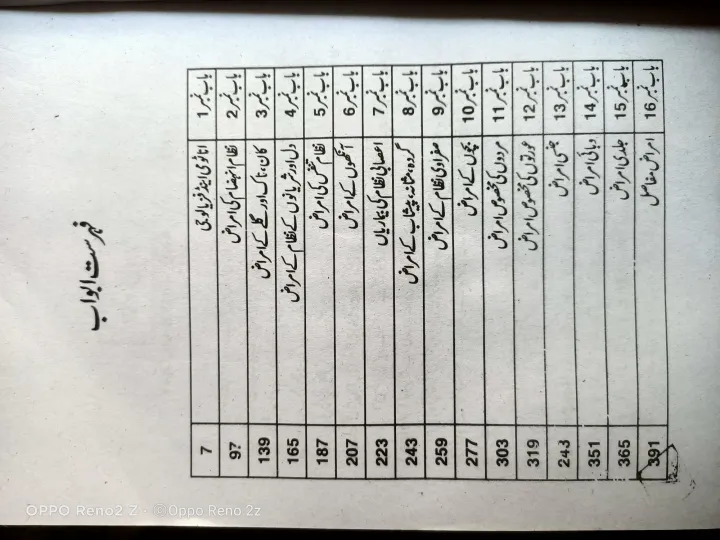 فہرست ابواب
باب نمبر 1 اناٹومی اینڈ فزیالوجی 7
باب نمبر 2 نظام انہضام کی امراض 97
باب نمبر 3 کان، ناک اور گلے کے امراض 139
باب نمبر 4 دل اور شریانوں کے نظام کے امراض 165
باب نمبر 5 نظام تنفس کی امراض 187
باب نمبر 6 آنکھوں کے امراض 207
باب نمبر 7 اعصابی نظام کی بیماریاں 223
باب نمبر 8 گردہ، مثانہ، پیشاب کے امراض 243
باب نمبر 9 صفراوی نظام کے امراض 259
باب نمبر 10 بچوں کے امراض 277
باب نمبر 11 مردوں کی مخصوص امراض 303
باب نمبر 12 عورتوں کی مخصوص امراض 319
باب نمبر 13 جنسی امراض 243
باب نمبر 14 وبائی امراض 351
باب نمبر 15 جلدی امراض 365
باب نمبر 16 امراض مفاصل 391
OPPO Reno2 Z - © Oppo Reno 2z